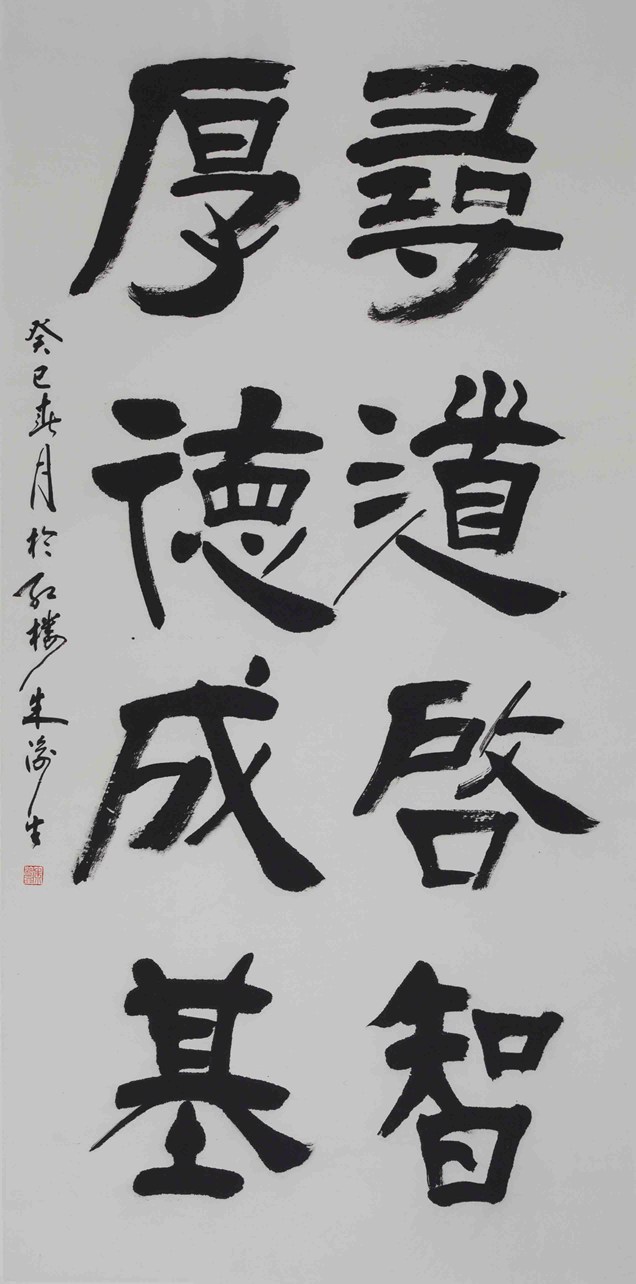 尋道啓智
厚德成基
癸巳春月於紅樓朱澮生